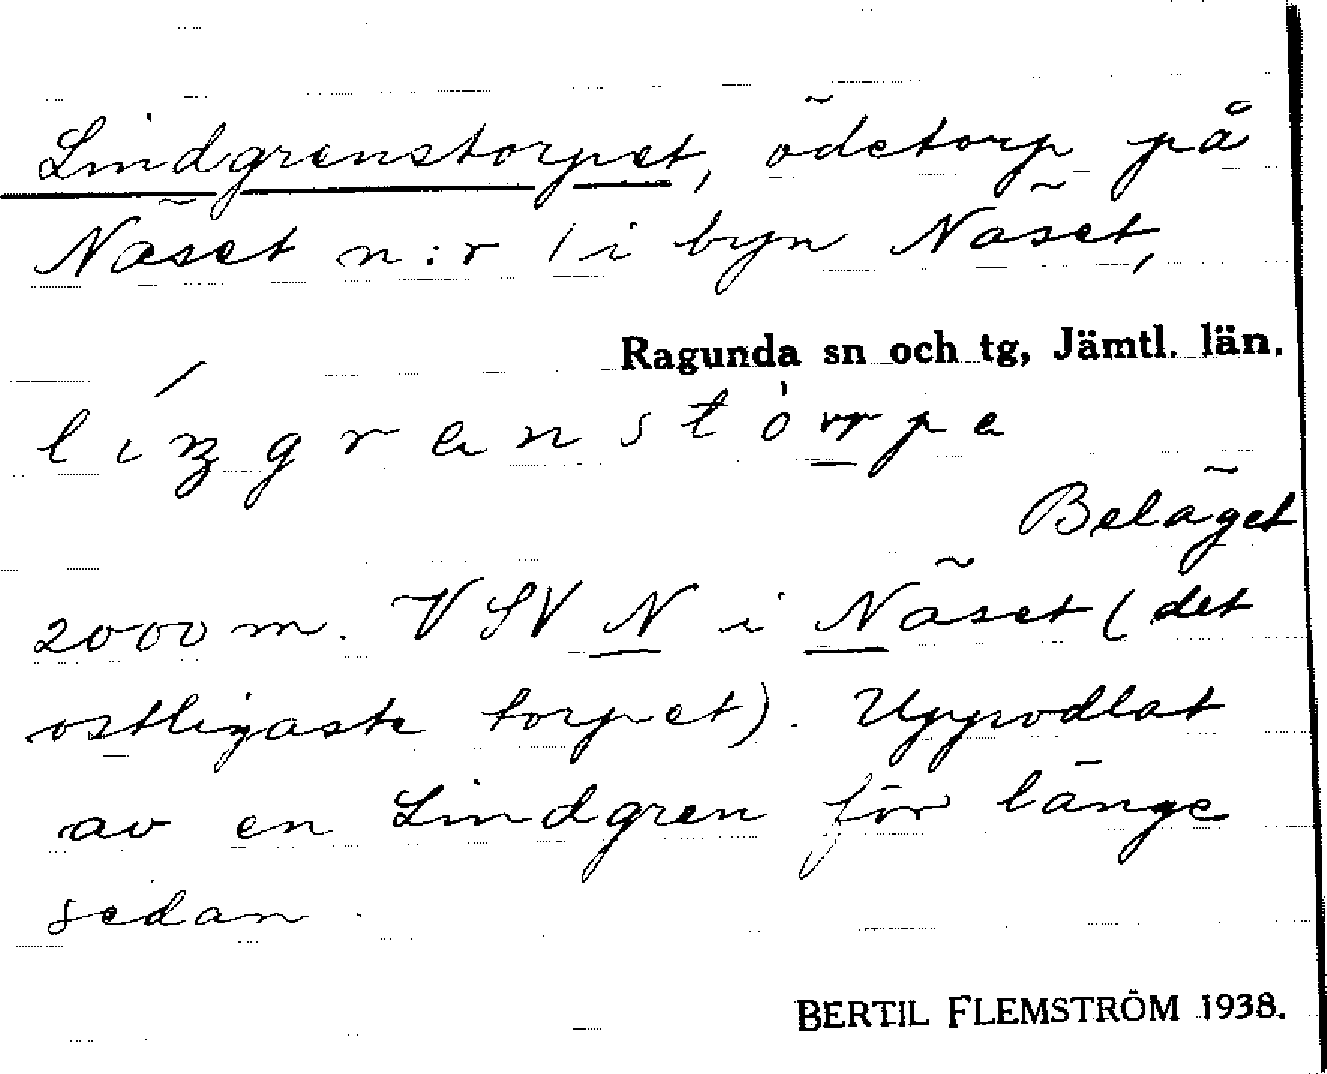 Lindgrenstorpet, ödetorp på
Näset n:r 1 i byn Näset,
Ragunda sn och tg, Jämtl. län.
Beläget
2000 m. VSV N i Näset (det
ostligaste torpet). Uppodlat
av en Lindgren för länge
sedan.
BERTIL FLEMSTRÖM 1938.